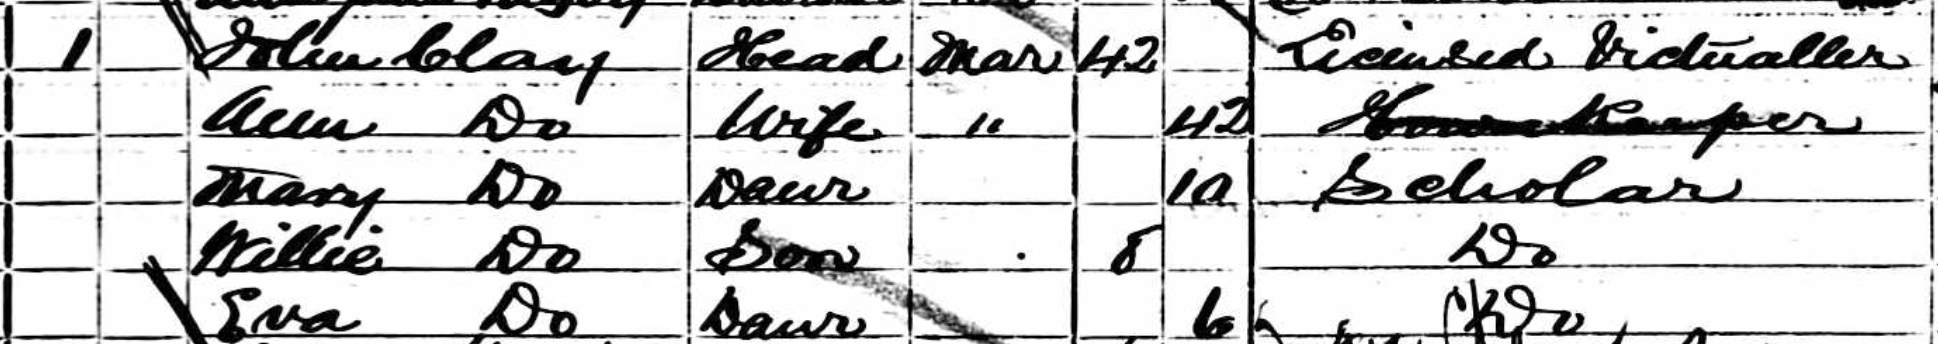 1 John Clay Head Mar 42 Licensed Victualler
Ann Do Wife " 42 House Keeper
Mary Do Daur 10 Scholar
Willie Do Son 8 Do
Eva Do Daur 6 Do